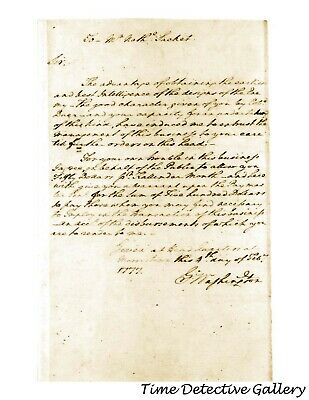 To Mr Nathl Sacket
Sir,
The advantage of obtaining the earliest
and best Intelligence of the designs of the Ene
my — the good character given of you by Colo.
Duer — and your capacity for an undertaking
of this kind, have induced me to entrust the
management of this business to your care
till further orders on this head. —
For your care & trouble in this business
I agree, on behalf of the Public, to allow you
Fifty Dollars pr. Kalendar Month — and here
with give you a warrant upon the Paymas
for the sum of Five hundred Dollars
to pay those whom you may find necessary
to Imploy in the transaction of this business
an acct. of the disbursements of which you
are to render to me. —
Given at Head Quarters at
Morris Town this 4th day of Feby.
1777.
Go Washington
Time Detective Gallery